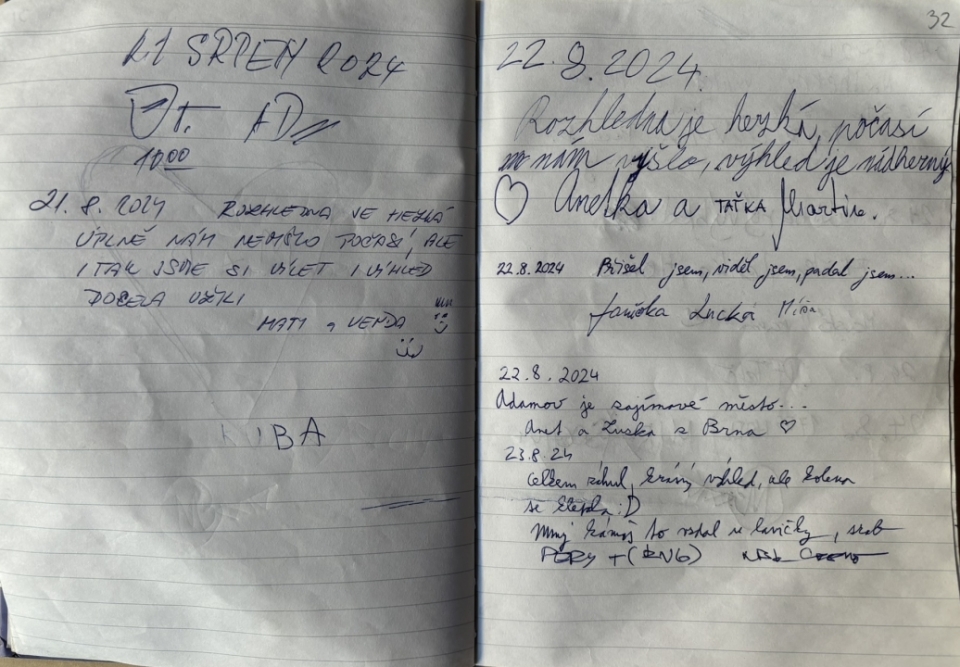 21 SRPEN 2024
10.00
21. 8. 2024 ROZHLEDNA JE HEZKÁ
ÚPLNĚ NÁM NEVYŠLO POČASÍ, ALE
I TAK JSME SI VÝLET I VÝHLED
DOCELA UŽILI
MATI a VENDA
BA
32
22.8.2024.
Rozhledna je hezká, počasí
nám vyšlo, výhled je nádherný
♡ Anetka a TAŤKA Martin.
22.8.2024 Přišel jsem, viděl jsem, padal jsem...
Janička Lucka Míša
22.8.2024
Adamov je zajímavé město...
Anet a Zuzka z Brna ♡
23.8.24
Celkem záhul, krásný výhled, ale kolena
se klepala :D
Můj kámoš to vzdal u lavičky, srab